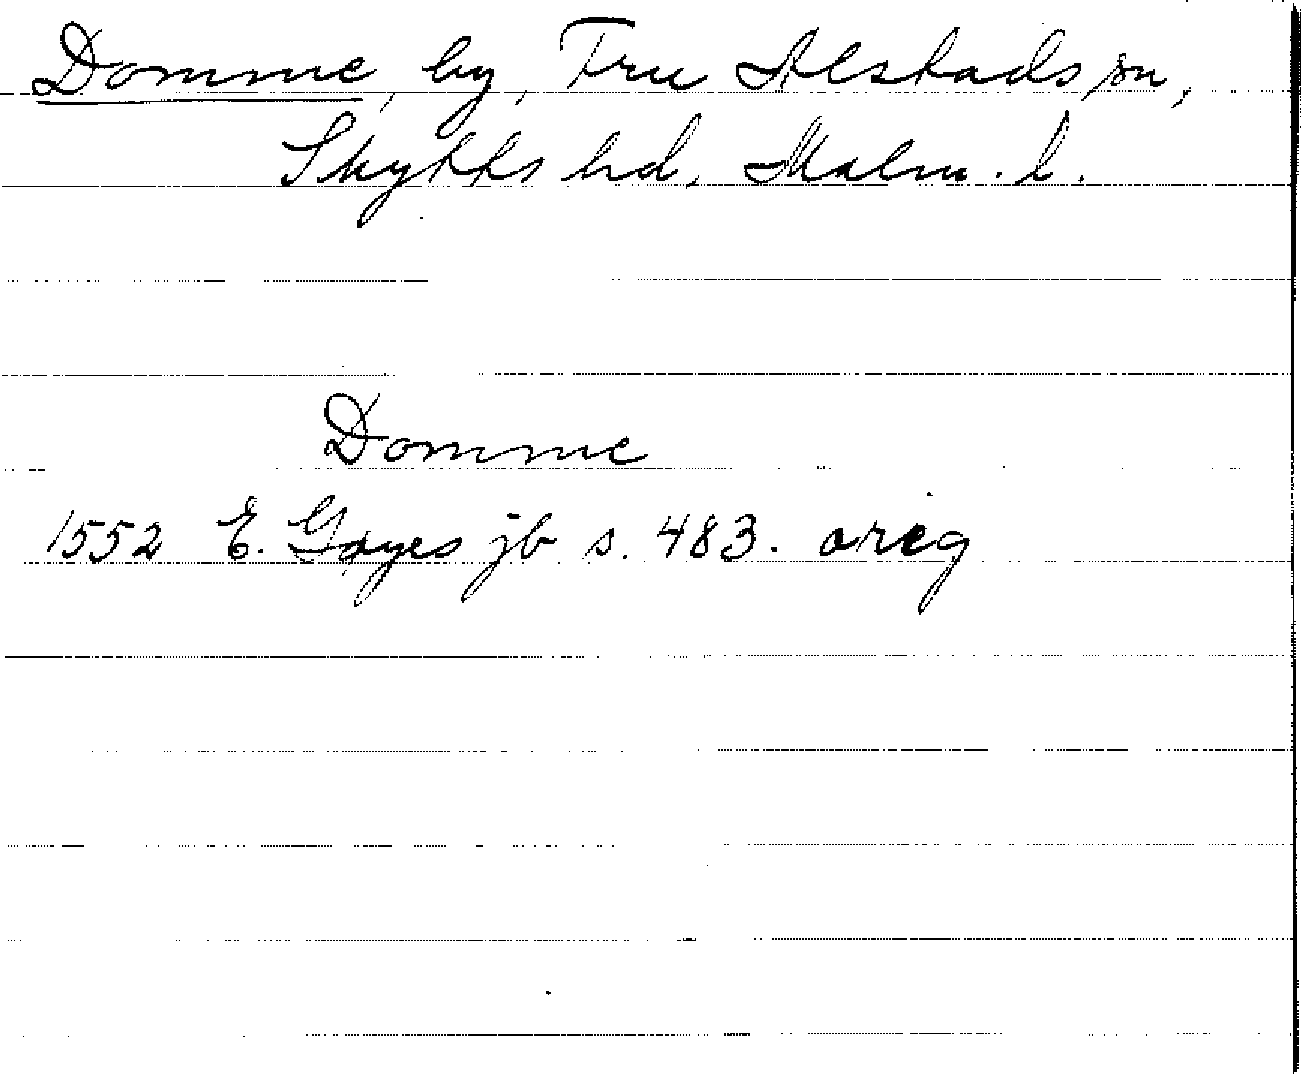 Domme, by, Fru Alstads sn,
Skytts hd, Malm. l.
Domme
1552 E. Gøyes jb s. 483. oreg